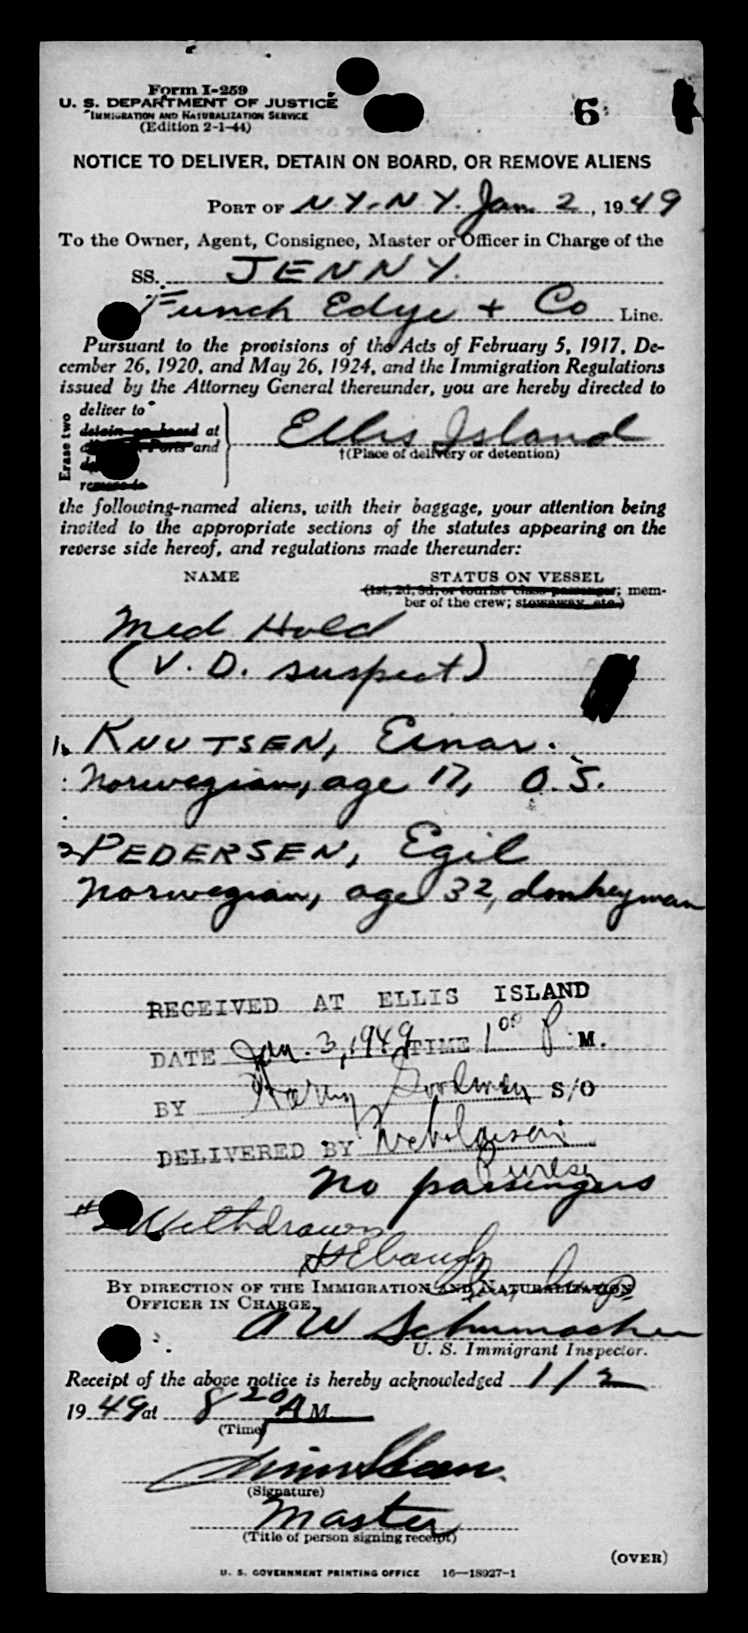 Form I-259
U. S. DEPARTMENT OF JUSTICE
IMMIGRATION AND NATURALIZATION SERVICE
(Edition 2-1-44)
6
NOTICE TO DELIVER, DETAIN ON BOARD, OR REMOVE ALIENS
PORT OF N Y. N Y. Jan 2, 1949
To the Owner, Agent, Consignee, Master or Officer in Charge of the
SS. JENNY.
Funch Edye + Co Line.
Pursuant to the provisions of the Acts of February 5, 1917, De-
cember 26, 1920, and May 26, 1924, and the Immigration Regulations
issued by the Attorney General thereunder, you are hereby directed to
Erase two
deliver to
detain on board at
Ports and
remove to
Ellis Island
†(Place of delivery or detention)
the following-named aliens, with their baggage, your attention being
invited to the appropriate sections of the statutes appearing on the
reverse side hereof, and regulations made thereunder:
NAME STATUS ON VESSEL
(1st, 2d, 3d, or tourist class passenger; mem-
ber of the crew; stowaway, etc.)
Med Hold
(V. D. suspect)
1. KNUTSEN, Einar.
Norwegian, age 17, O.S.
2 PEDERSEN, Egil
Norwegian, age 32, donkeyman
RECEIVED AT ELLIS ISLAND
DATE Jan. 3, 1949 TIME 1 00 P M.
BY Harry Goodman S/O
DELIVERED BY
No passengers
#2 Withdrawn
BY DIRECTION OF THE IMMIGRATION AND NATURALIZATION
OFFICER IN CHARGE.
A W Schumacher
U. S. Immigrant Inspector.
Receipt of the above notice is hereby acknowledged 1/2
1949 at 8 20 A M
(Time)
(Signature)
Master
(Title of person signing receipt)
(OVER)
U. S. GOVERNMENT PRINTING OFFICE 16—18927-1